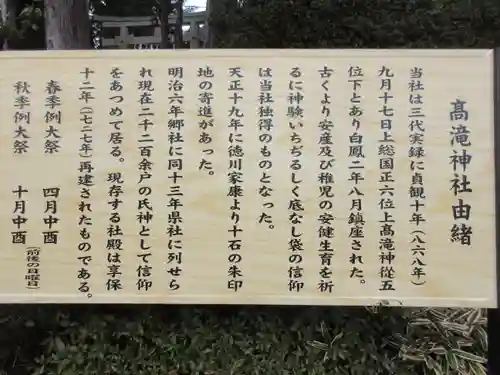 高滝神社由緒
当社は三代実録に貞観十年（八六八年）
九月十七日上総国正六位上高滝神従五
位下とあり白鳳二年八月鎮座された。
古くより安産及び稚児の安健生育を祈
るに神験いちぢるしく底なし袋の信仰
は当社独得のものとなった。
天正十九年に徳川家康より十石の朱印
地の寄進があった。
明治六年郷社に同十三年県社に列せら
れ現在二千二百余戸の氏神として信仰
をあつめて居る。現存する社殿は享保
十二年（七二七年）再建されたものである。
春季例大祭　四月中酉
秋季例大祭　十月中酉
（前後の日曜日）